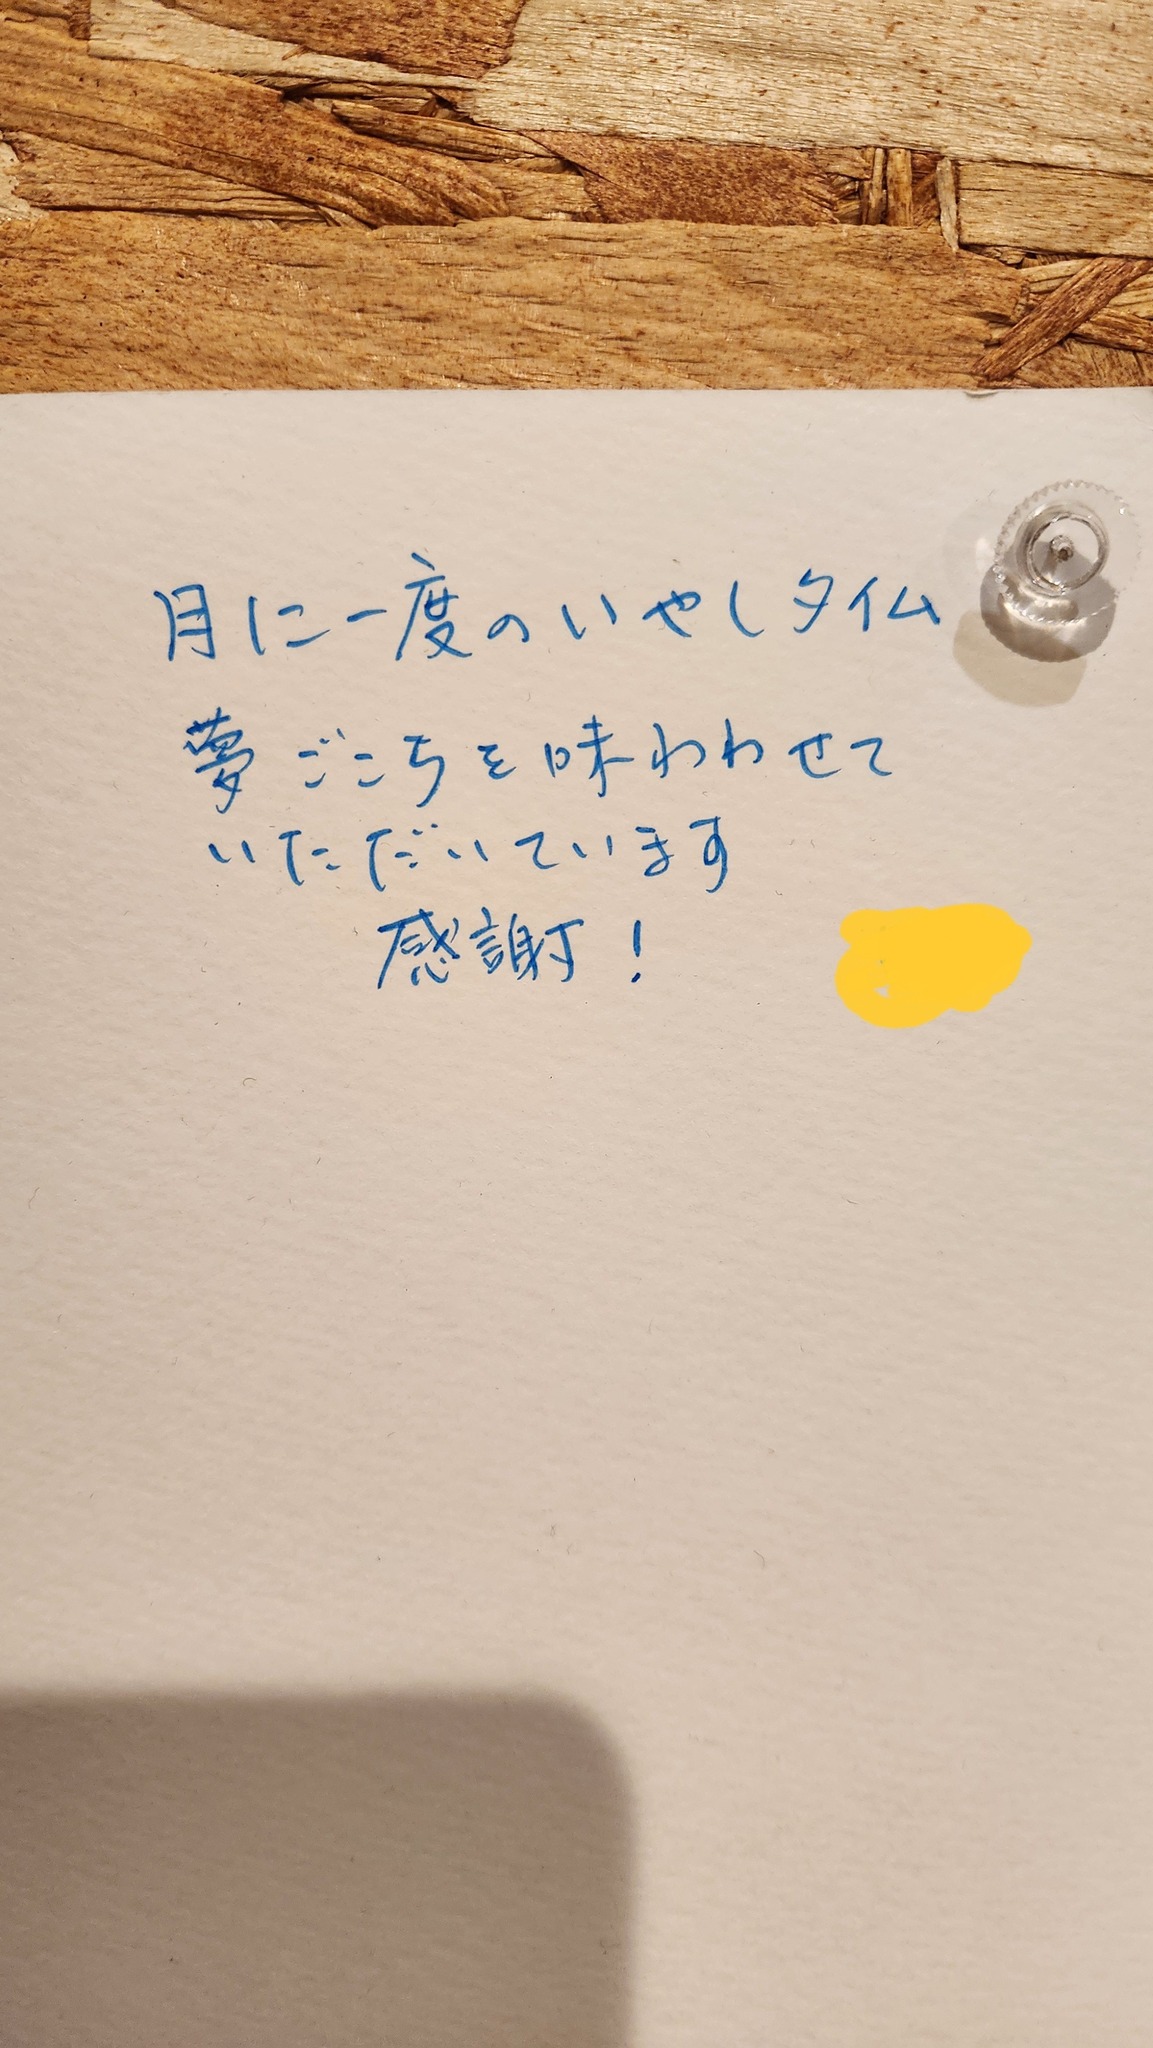 月に一度のいやしタイム
夢ごこちを味わわせて
いただいています
感謝！